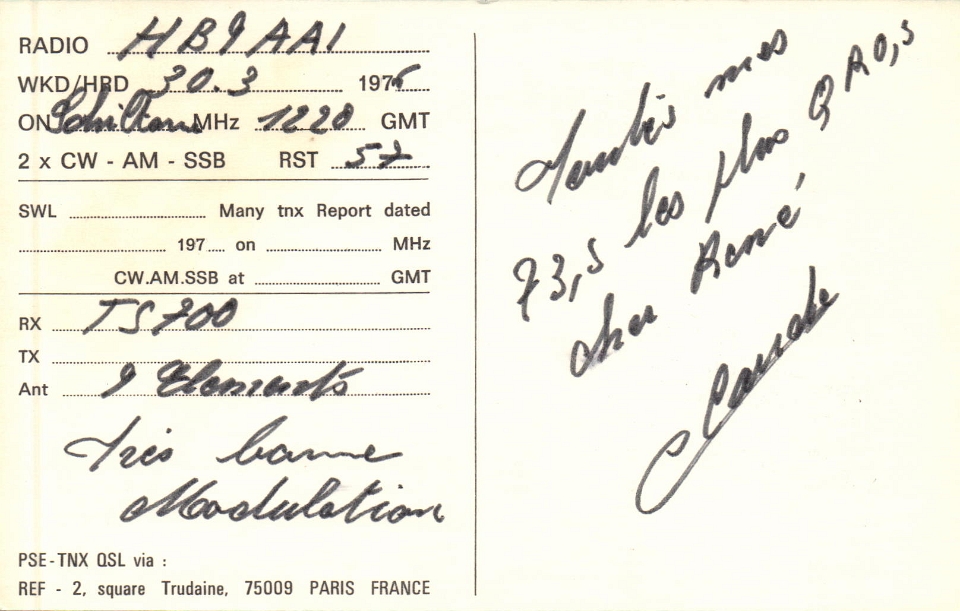 RADIO HB9AAI
WKD/HRD 30.3 1976
ON MHz 1220 GMT
2 x CW - AM - SSB RST 57
SWL Many tnx Report dated
197 on MHz
CW.AM.SSB at GMT
RX TS 700
TX
Ant 9 Elements
très bonne
Modulation
PSE-TNX QSL via :
REF - 2, square Trudaine, 75009 PARIS FRANCE
mes
73,s les plus QRO,s
cher René
Claude